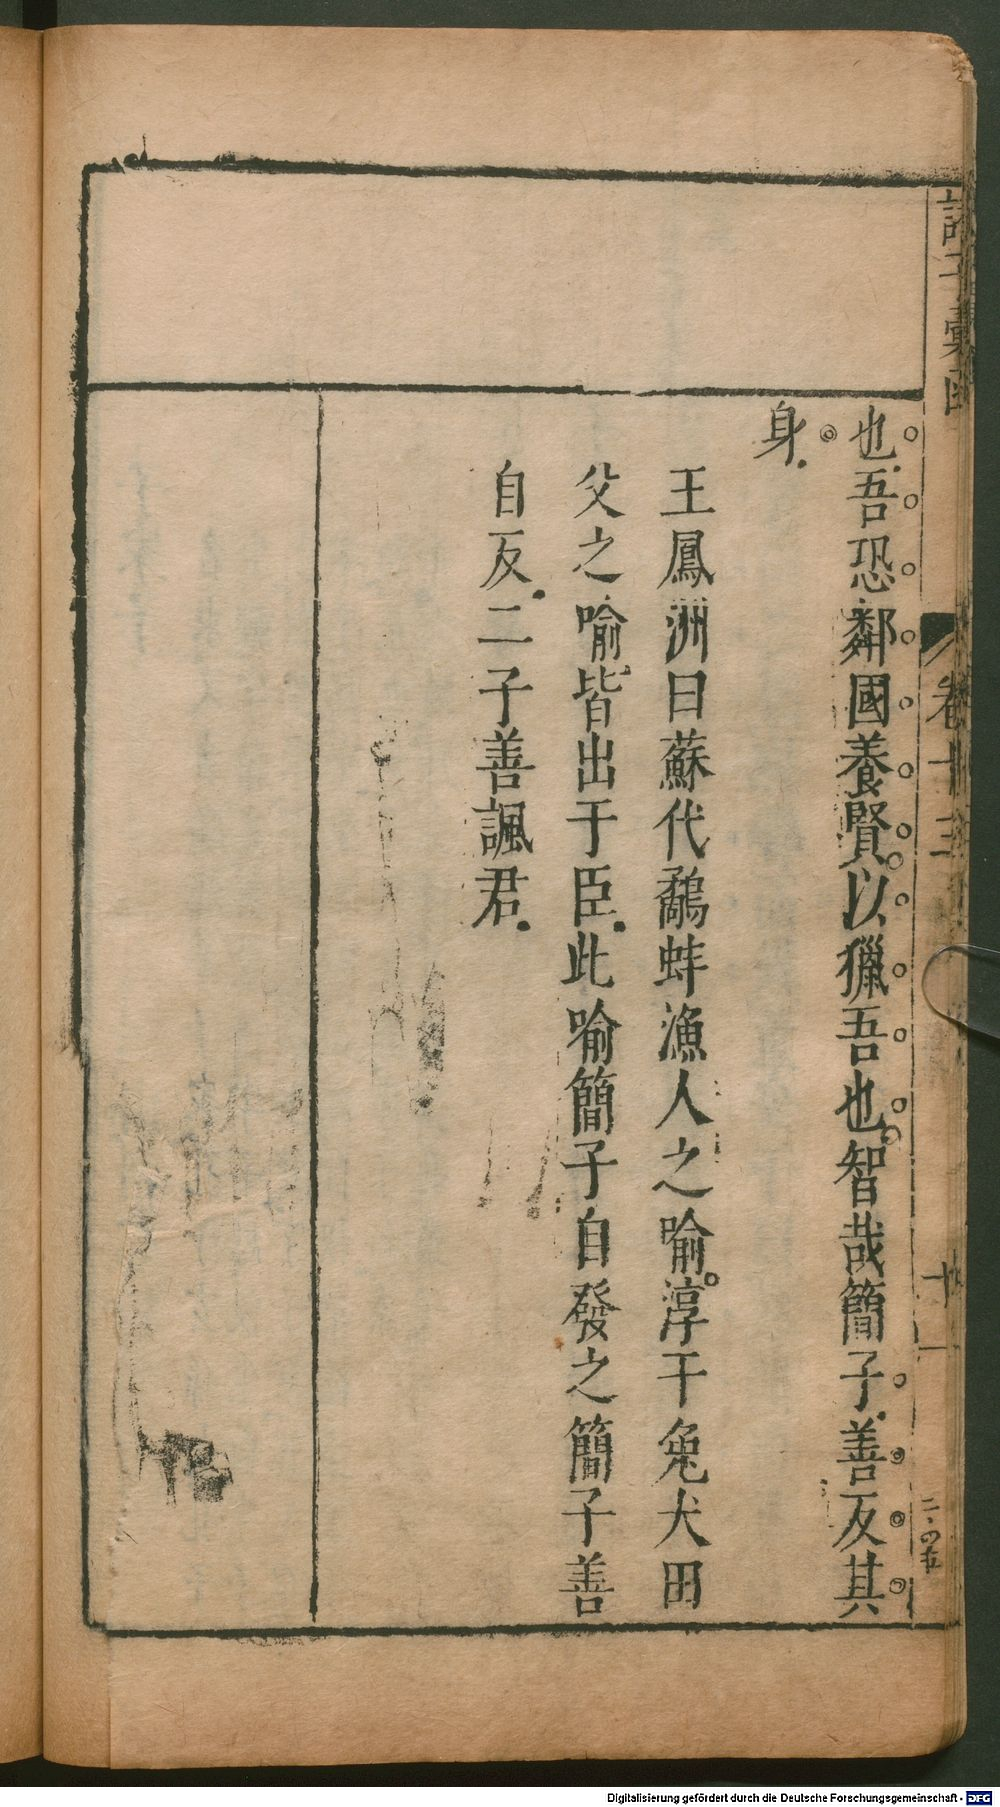 諸子彙函
卷十三
十一
二·四五
也吾恐鄰國養賢以獵吾也智哉簡子善反其
身
王鳳洲曰蘇代鷸蚌漁人之喻淳于兔犬田
父之喻皆出于臣此喻簡子自發之簡子善
自反二子善諷君
Digitalisierung gefördert durch die Deutsche Forschungsgemeinschaft - DFG